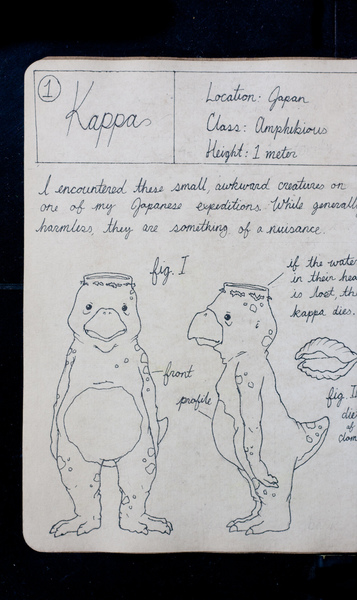 1
Kappa
Location: Japan
Class: Amphibious
Height: 1 meter
I encountered these small, awkward creatures on
one of my Japanese expeditions. While generall
harmless, they are something of a nuisance.
fig. I
if the water
in their hea
is lost, th
kappa dies.
front
profile
fig. II
die
of
clam